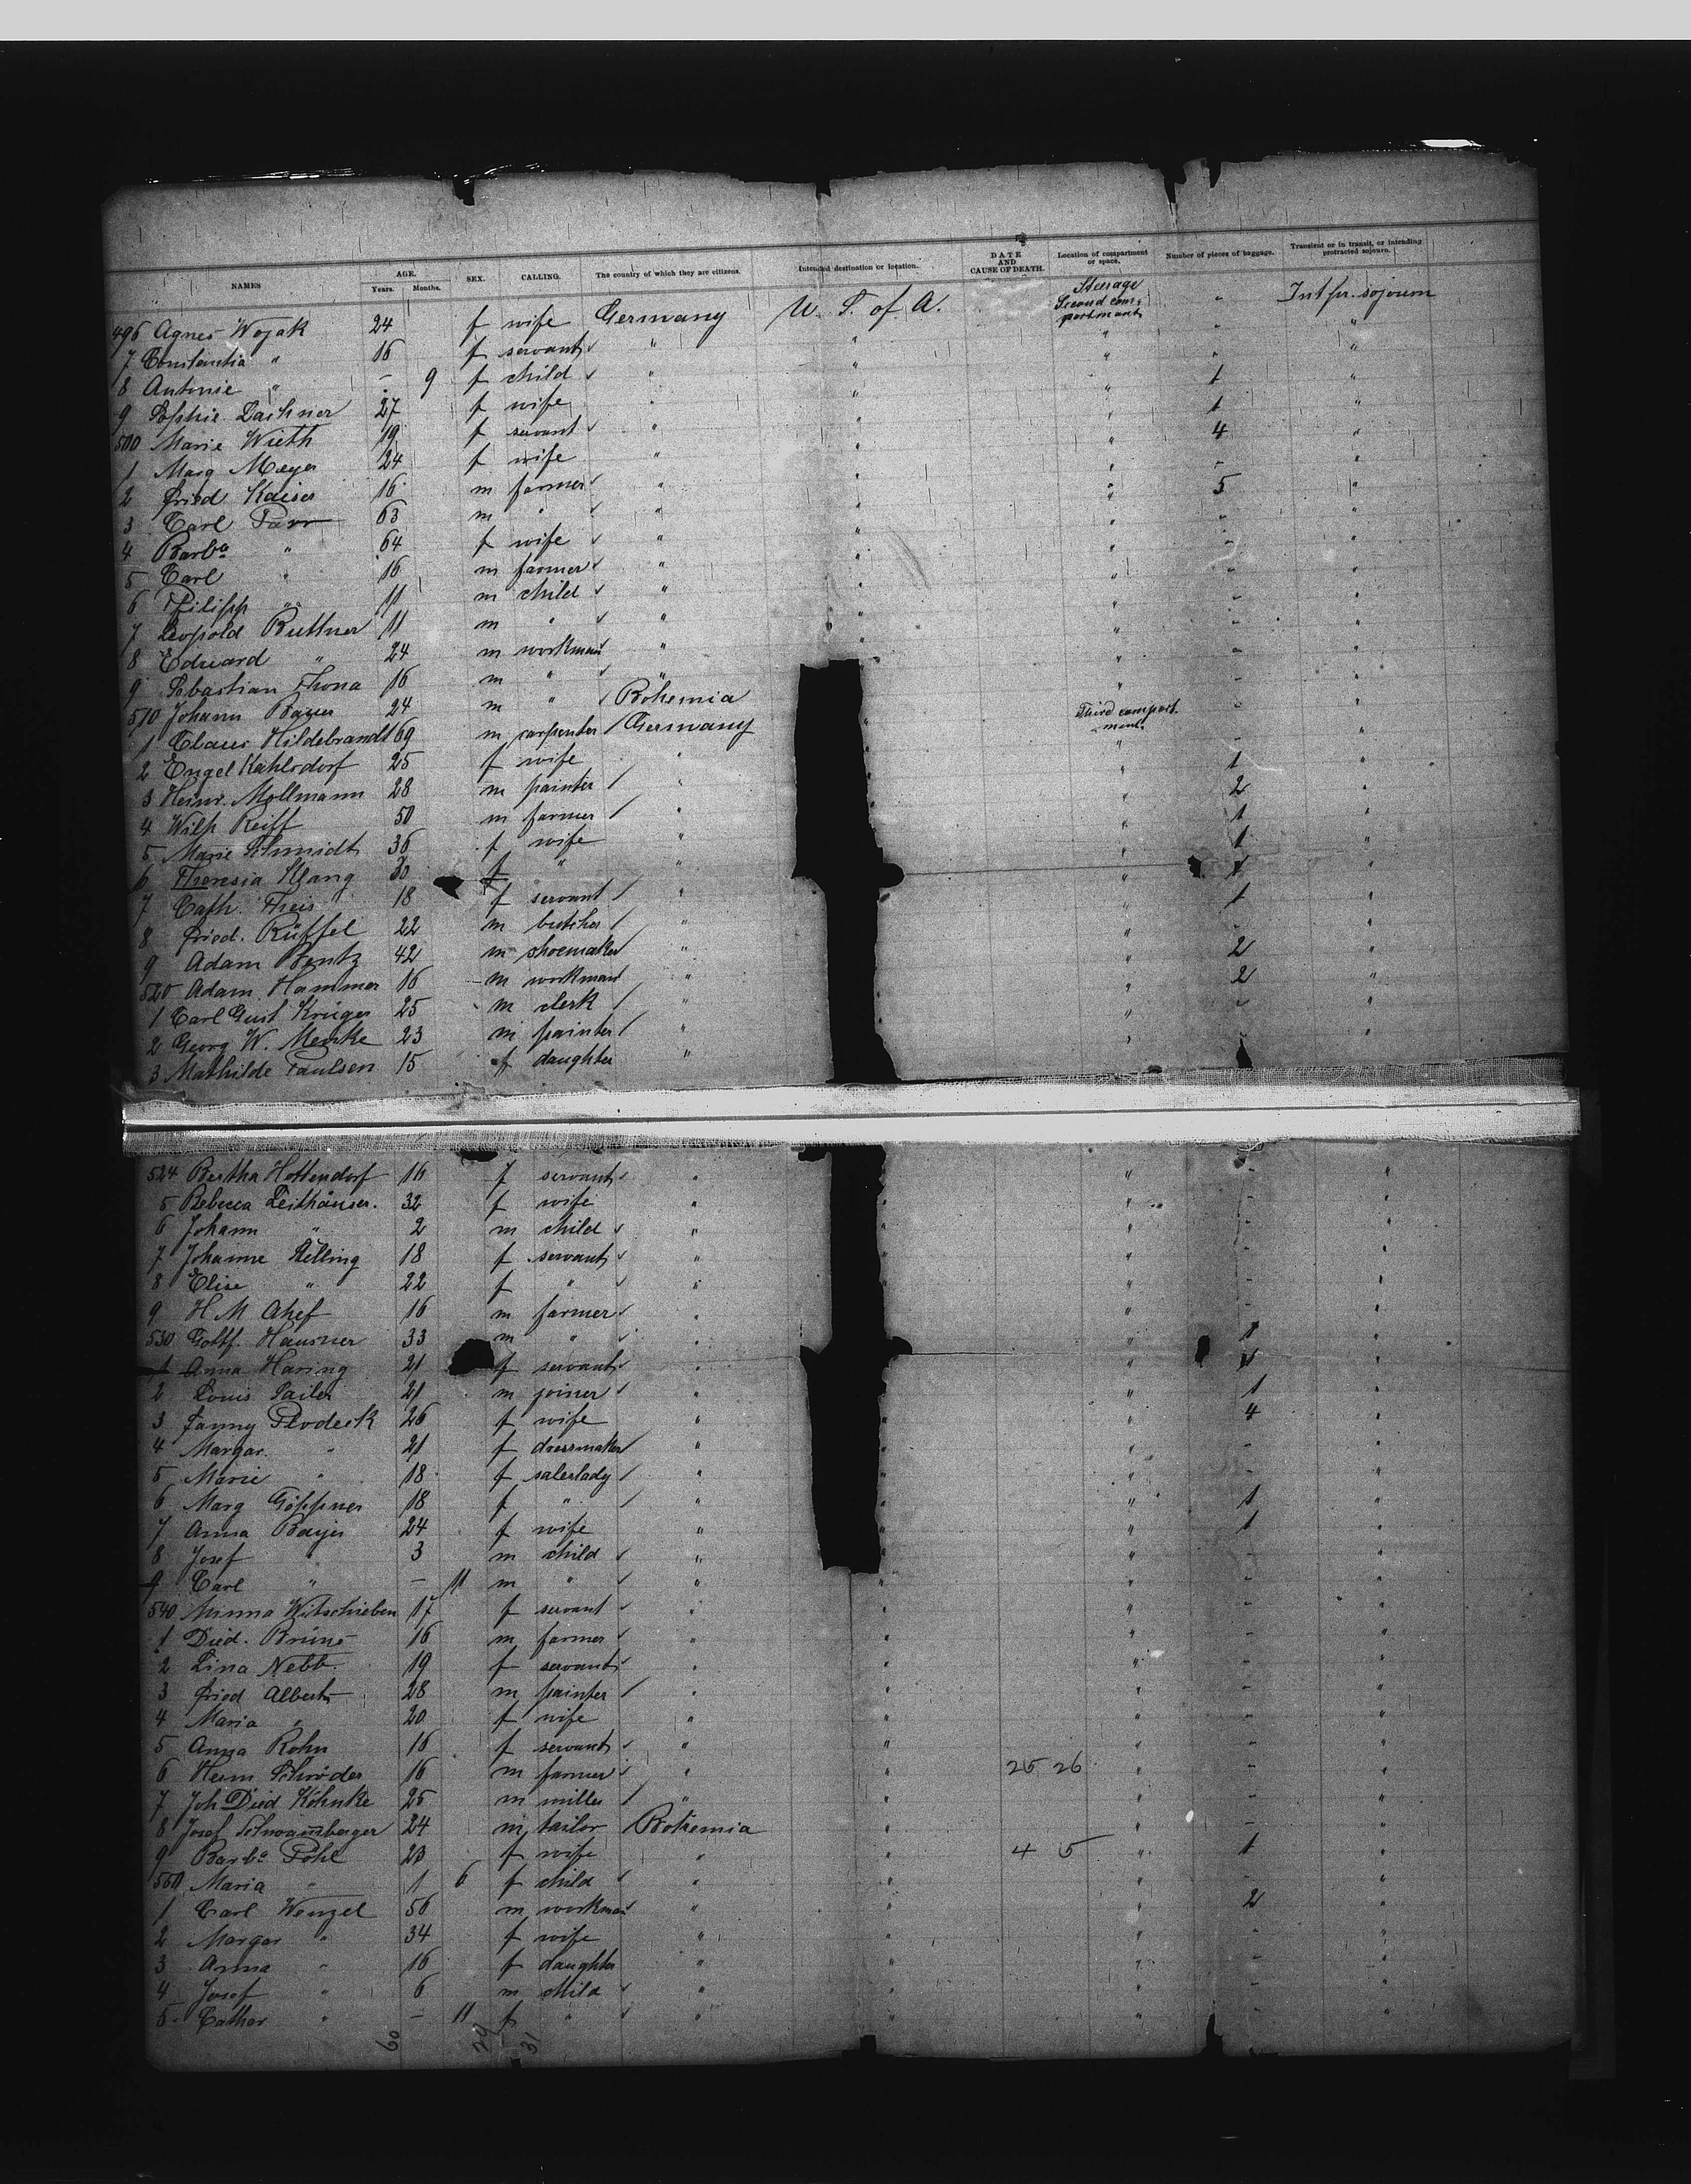 NAMES AGE. Years. Months. SEX. CALLING. The country of which they are citizens. Intended destination or location. DATE AND CAUSE OF DEATH. Location of compartment or space. Number of pieces of baggage. Transient or in transit, or intending protracted sojourn.
496 Agnes Wojak 24 f wife Germany U. S. of A. Steerage Second compartment " Int pr. sojourn
7 Constantia " 16 f servant " " " " "
8 Antonie " – 9 f child " " " 1 "
9 Sophie Daihner 27 f wife " " " 1 "
500 Marie Wieth 19 f servant " " " 4 "
1 Marg Meyer 24 f wife " " " - "
2 Fried Kaiser 16 m farmer " " " 5 "
3 Carl Parr 63 m " " " " " "
4 Barba " 64 f wife " " " " "
5 Carl " 16 m farmer " " " " "
6 Philipp " 11 m child " " " - "
7 Leopold Buttner 11 m " " " " - "
8 Eduard " 24 m workman " " " - "
9 Sebastian Thona 16 m " " " - "
510 Johann Bayer 24 m " Bohemia " - "
1 Claus Hildebrandt 69 m carpenter Germany " Third compartment - "
2 Engel Kahlsdorf 25 f wife " " " 1 "
3 Heinr. Mollmann 28 m painter " " " 2 "
4 Wilh Reiff 50 m farmer " " 1 "
5 Marie Schmidt 36 f wife " " 1 "
6 Theresia Klang 30 f " " " 1 "
7 Cath. Theis 18 f servant " " 1 "
8 Fried. Rüffel 22 m butcher " " - "
9 Adam Bentz 42 m shoemaker " " 2 "
520 Adam Hammer 16 m workman " " 2 "
1 Carl Gust Krüger 25 m clerk " " - "
2 Georg W. Meinke 23 m painter " " - "
3 Mathilde Paulsen 15 f daughter "
524 Bertha Hottendorf 16 f servant " " - "
5 Rebecca Leithäuser. 32 f wife " " " - "
6 Johann " 2 m child " " " - "
7 Johanne Stelling 18 f servant " " " - "
8 Elise " 22 f " " " " - "
9 H M Ahef 16 m farmer " " " - "
530 Gottf. Hausner 33 m " " " 1 "
1 Anna Haring 21 f servant " " 1 "
2 Louis Sailer 21 m joiner " " " 1 "
3 Fanny Plodeck 26 f wife " " " 4 "
4 Margar. " 21 f dressmaker " " " - "
5 Marie " 18 f saleslady " " " - "
6 Marg Göppner 18 f " " " " 1 "
7 Anna Bayer 24 f wife " " " 1 "
8 Josef " 3 m child " " " - "
9 Carl " – 11 m " " " " - "
540 Minna Witschieben 17 f servant " " " - "
1 Died. Brüns 16 m farmer " " " - "
2 Lina Nebb. 19 f servant " " " - "
3 Fried Albert 28 m painter " " " - "
4 Maria " 20 f wife " " " - "
5 Anna Rohn 16 f servant " " " - "
6 Herm Schröder 16 m farmer " " 25 26 " - "
7 Joh Died Köhnke 25 m miller " " " - "
8 Josef Schwarzberger 24 m tailor Bohemia " " - "
9 Barba Pöhl 23 f wife " " 4 5 " 1 "
550 Maria " 1 6 f child " " " - "
1 Carl Wenzel 56 m workman " " " 2 "
2 Margar " 34 f wife " " " - "
3 Anna " 16 f daughter " " " - "
4 Josef " 6 m child " " " - "
5 Cathar " – 11 f " " " " - "
60 29 31